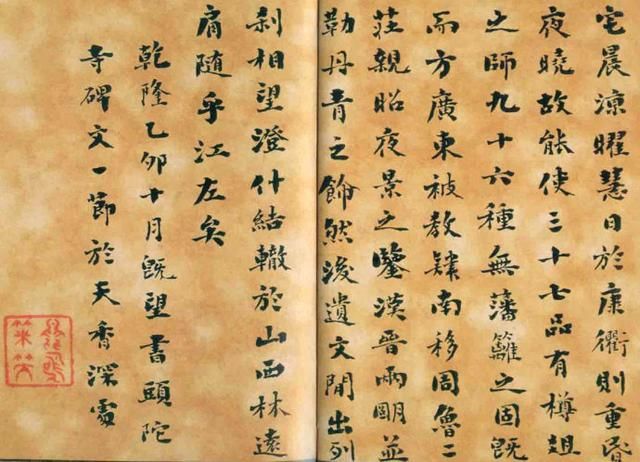 宅晨涼曜慧日於康衢則重昏
夜曉故能使三十七品有樽俎
之師九十六種無藩籬之固既
而方廣東被教肄南移周魯二
莊親昭夜景之鑒漢晉兩明並
勒丹青之飾然後遺文閒出列
刹相望澄什結轍於山西林遠
肩隨乎江左矣
乾隆乙卯十月既望書頭陀
寺碑文一節於天香深處